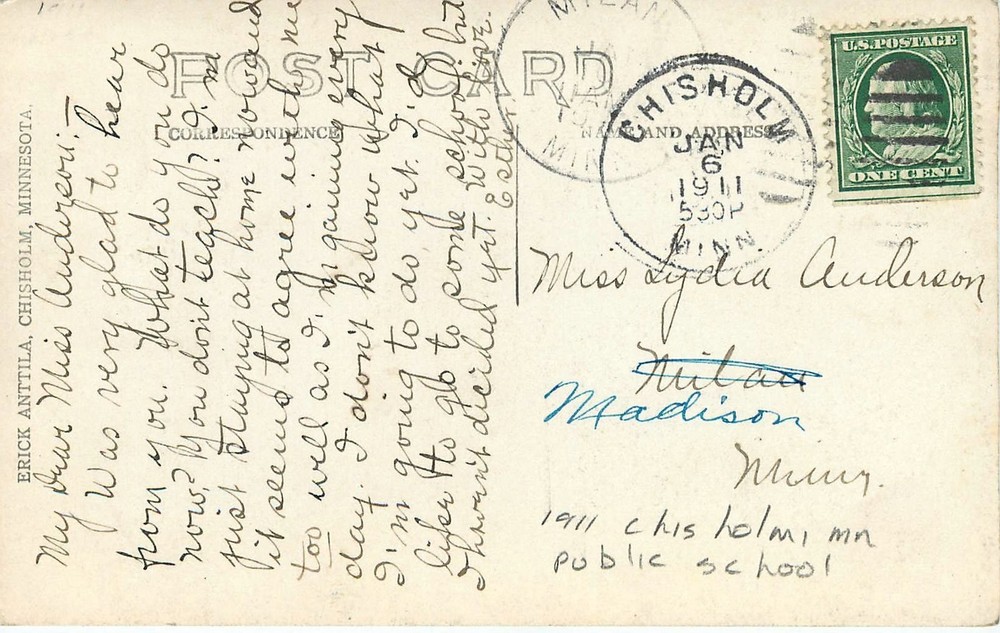 POST CARD
CORRESPONDENCE
NAME AND ADDRESS
ERICK ANTTILA, CHISHOLM, MINNESOTA.
My Dear Miss Anderson:-
Was very glad to hear
from you. What do you do
now? You don't teach? I'm
just staying at home now and
it seems to agree with me
too well as I'm gaining every
day. I don't know what
I'm going to do yet. I'd
like to go to some school but
I haven't dicided yet. With love.
Esther.
MILAN
JAN
MINN
CHISHOLM
JAN
6
1911
530P
MINN
U.S. POSTAGE
ONE CENT
Miss Lydia Anderson
Milan
Madison
Minn.
1911 chisholm, mn
public school